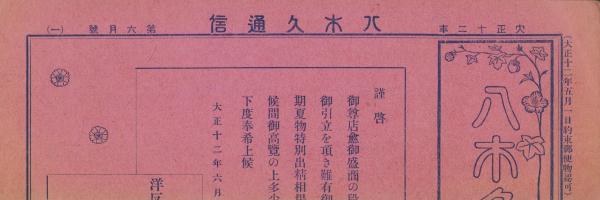 (大正十二年五月一日約束郵便物認可)
大正十二年
八木久通信
第六月號
(一)
八木久
謹啓
御尊店愈御盛商の段
御引立を頂き難有御
期夏物特別出精相場
候間御高覽の上多少
下度奉希上候
大正十二年六月
洋反